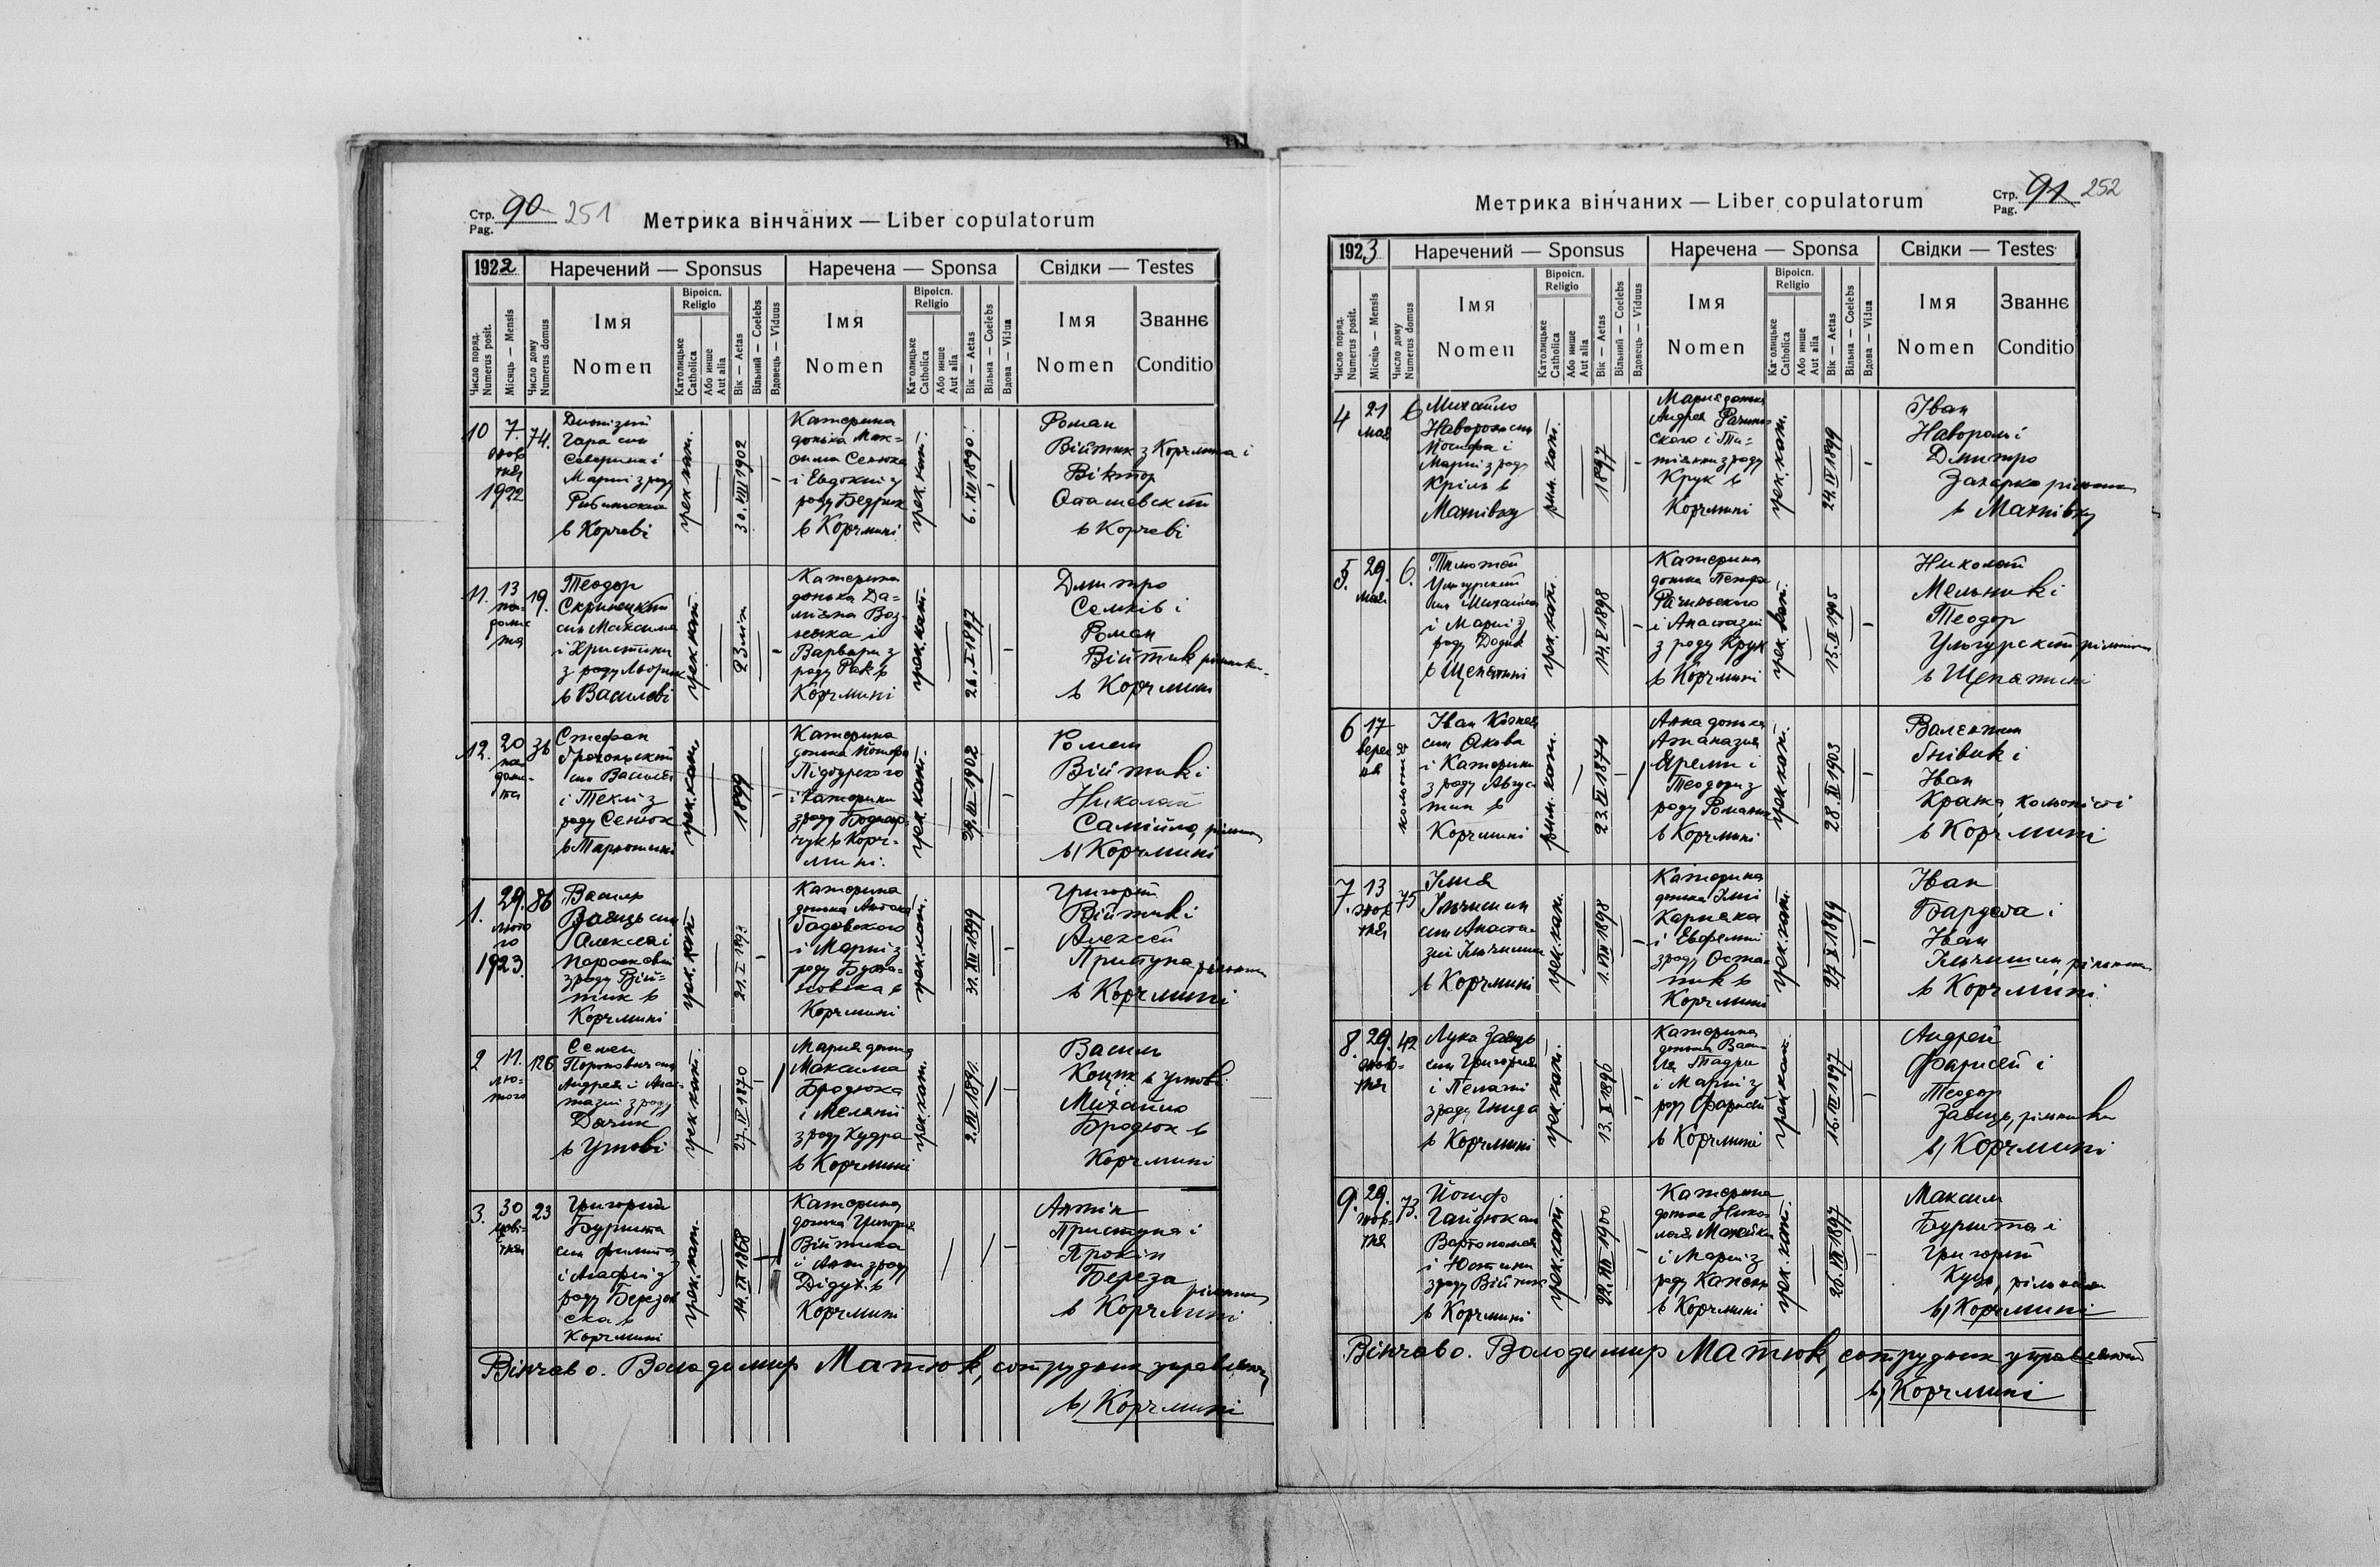 Стр. 90 251
Pag.
Метрика вінчаних — Liber copulatorum
1922 Наречений — Sponsus Наречена — Sponsa Свідки — Testes
Число поряд. Numerus posit.
Місяць — Mensis
Число дому Numerus domus
Імя Nomen
Віроісп. Religio
Католицьке Catholica
Або инше Aut alia
Вік — Aetas
Вільний — Coelebs
Вдовець — Viduus
Імя Nomen
Віроісп. Religio
Католицьке Catholica
Або инше Aut alia
Вік — Aetas
Вільна — Coelebs
Вдова — Vidua
Імя Nomen
Званнє Conditio
10
7.
жов
тня
1922
74.
Гара син
Северина і
Марії з роду
в Корчеві
грек. кат.
30.VIII 1902
Катерина
донька Мак-
сима Сенюка
і Евдокиї з
роду Бедрик
в Корчмині
грек. кат.
6. XII 1890
Роман
Війтик з Корчмина і
Віктор
в Корчеві
11.
13
па-
долис
та
19.
Теодор
Скрипецкий
син Максима
і Христини
з роду
в Василеві
грек. кат.
23 літ
Катерина
донька Да-
міяна Воз-
няка і
Варвари з
роду Рак в
Корчмині
грек. кат.
26. I 1897
Дмитро
Семків і
Роман
Війтик рільники
в Корчмині
12.
20
па
доли-
ста
36
Стефан
син Василя
і Теклі з
роду Сенюк
грек. кат.
1899
Катерина
донька Йосифа
Підгурского
і Катерини
з роду Боднар-
чук в Корч-
мині.
грек. кат.
29. III 1902
Роман
Війтик і
Николай
Самійло, рільники
в Корчмині
1.
29.
люто
го
1923.
86
Василь
Заяць син
Алексея і
Параскевії
з роду Вій-
тик в
Корчмині
грек. кат.
21. I 1893
Катерина
донька Антона
Гадовского
і Марії з
роду
Корчмині
грек. кат.
31. XII 1899
Григорій
Війтик і
Алексей
Приступа рільники
в Корчмині
2
11.
лю-
того
126
Семен
Андрея і Анас-
тазиї з роду
Дячик
в Угнові
грек. кат.
27. IV 1870
Мария донька
Максима
Бродюка
і Меланії
з роду Кудра
в Корчмині
грек. кат.
2. VI 1891.
Василь
Коцик в Угнові
Михайло
Бродюк в
Корчмині
3.
30
цьві-
тня
23
Григорий
Буришта
син Филипа
і Агафії з
роду Березов
ска в
Корчмині
грек. кат.
14. IX 1868
Катерина
донька Григорія
Війтика
і Анни з роду
Дідух в
Корчмині
Антін
Приступа і
Прокіп
Береза рільники
в Корчмині
Вінчав о. Володимир Матюк, сотрудник управляючий
в Корчмині
Стр. 91 252
Pag.
Метрика вінчаних — Liber copulatorum
1923 Наречений — Sponsus Наречена — Sponsa Свідки — Testes
Число поряд. Numerus posit.
Місяць — Mensis
Число дому Numerus domus
Імя Nomen
Віроісп. Religio
Католицьке Catholica
Або инше Aut alia
Вік — Aetas
Вільний — Coelebs
Вдовець — Viduus
Імя Nomen
Віроісп. Religio
Католицьке Catholica
Або инше Aut alia
Вік — Aetas
Вільна — Coelebs
Вдова — Vidua
Імя Nomen
Званнє Conditio
4
21
мая
6
Михайло
Йосифа і
Марії з роду
Кріль в
Махнівку
рим. кат.
1897
Мария донька
Андрея Рачин-
ского і Ти-
тянни з роду
Крук в
Корчмині
грек. кат.
24. IV 1899
Іван
Дмитро
Захарко рільники
в Махнівку
5.
29.
мая
6.
Тимотей
Угнурский
син Михайла
і Марії з
роду Додик
в Щепятині
грек. кат.
14. V 1898
Катерина
донька Петра
Рачинського
і Анастазиї
з роду Крук
в Корчмині
грек. кат.
15. IV 1905
Николай
Мельник і
Теодор
рільники
в Щепятині
6
17
верес
ня
кольонія
Іван
син Якова
і Катерини
з роду Авгус-
тин в
Корчмині
рим. кат.
23. VI 1874
Анна донька
Атаназия
Яреми і
Теодори з
роду Романик
в Корчмині
грек. кат.
28. XI 1903
Валентин
Гнівик і
Іван
Кража, кольоністі
в Корчмині
7.
13
жов
тня
75
Ілля
Ільчишин
син Анаста-
зиї Ільчишин
в Корчмині
грек. кат.
1. VIII 1898
Катерина
донька Іллі
Корняка
і Евфемії
з роду Оста-
пик в
Корчмині
грек. кат.
27. X 1899
Іван
Бардега і
Іван
Ільчишин, рільники
в Корчмині
8.
29.
жов-
тня
42
Лука Заяць
син Григорія
і Пелагії
з роду Гнида
в Корчмині
грек. кат.
13. X 1896
Катерина
донька Васи-
ля
і Марії з
роду Фарисей
в Корчмині
грек. кат.
16. III 1897
Андрей
Фарисей і
Теодор
Заяць, рільники
в Корчмині
9.
29.
жов-
тня
73.
Йосиф
Гайдюк син
Вартоломея
і Юстини
з роду Війтик
в Корчмині
грек. кат.
22. VIII 1900
Катерина
донька Нико-
лая Мажейка
і Марії з
роду
в Корчмині
грек. кат.
26. VII 1897
Максим
Буришта і
Григорій
Куць, рільники
в Корчмині
Вінчав о. Володимир Матюк, сотрудник управляючий
в Корчмині